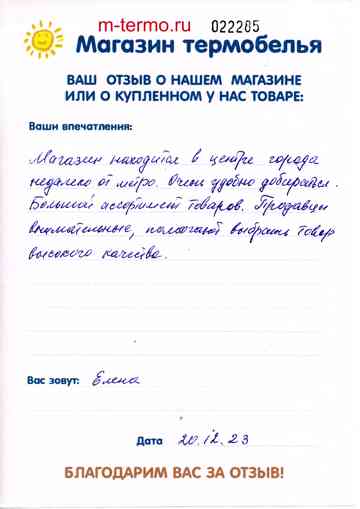 m-termo.ru 022285
Магазин термобелья
ВАШ ОТЗЫВ О НАШЕМ МАГАЗИНЕ
ИЛИ О КУПЛЕННОМ У НАС ТОВАРЕ:
Ваши впечатления:
Магазин находится в центре города
недалеко от метро. Очень удобно добираться.
Большой ассортимент товаров. Продавцы
внимательные, помогают выбрать товар
высокого качества.
Вас зовут: Елена
Дата 20.12.23
БЛАГОДАРИМ ВАС ЗА ОТЗЫВ!